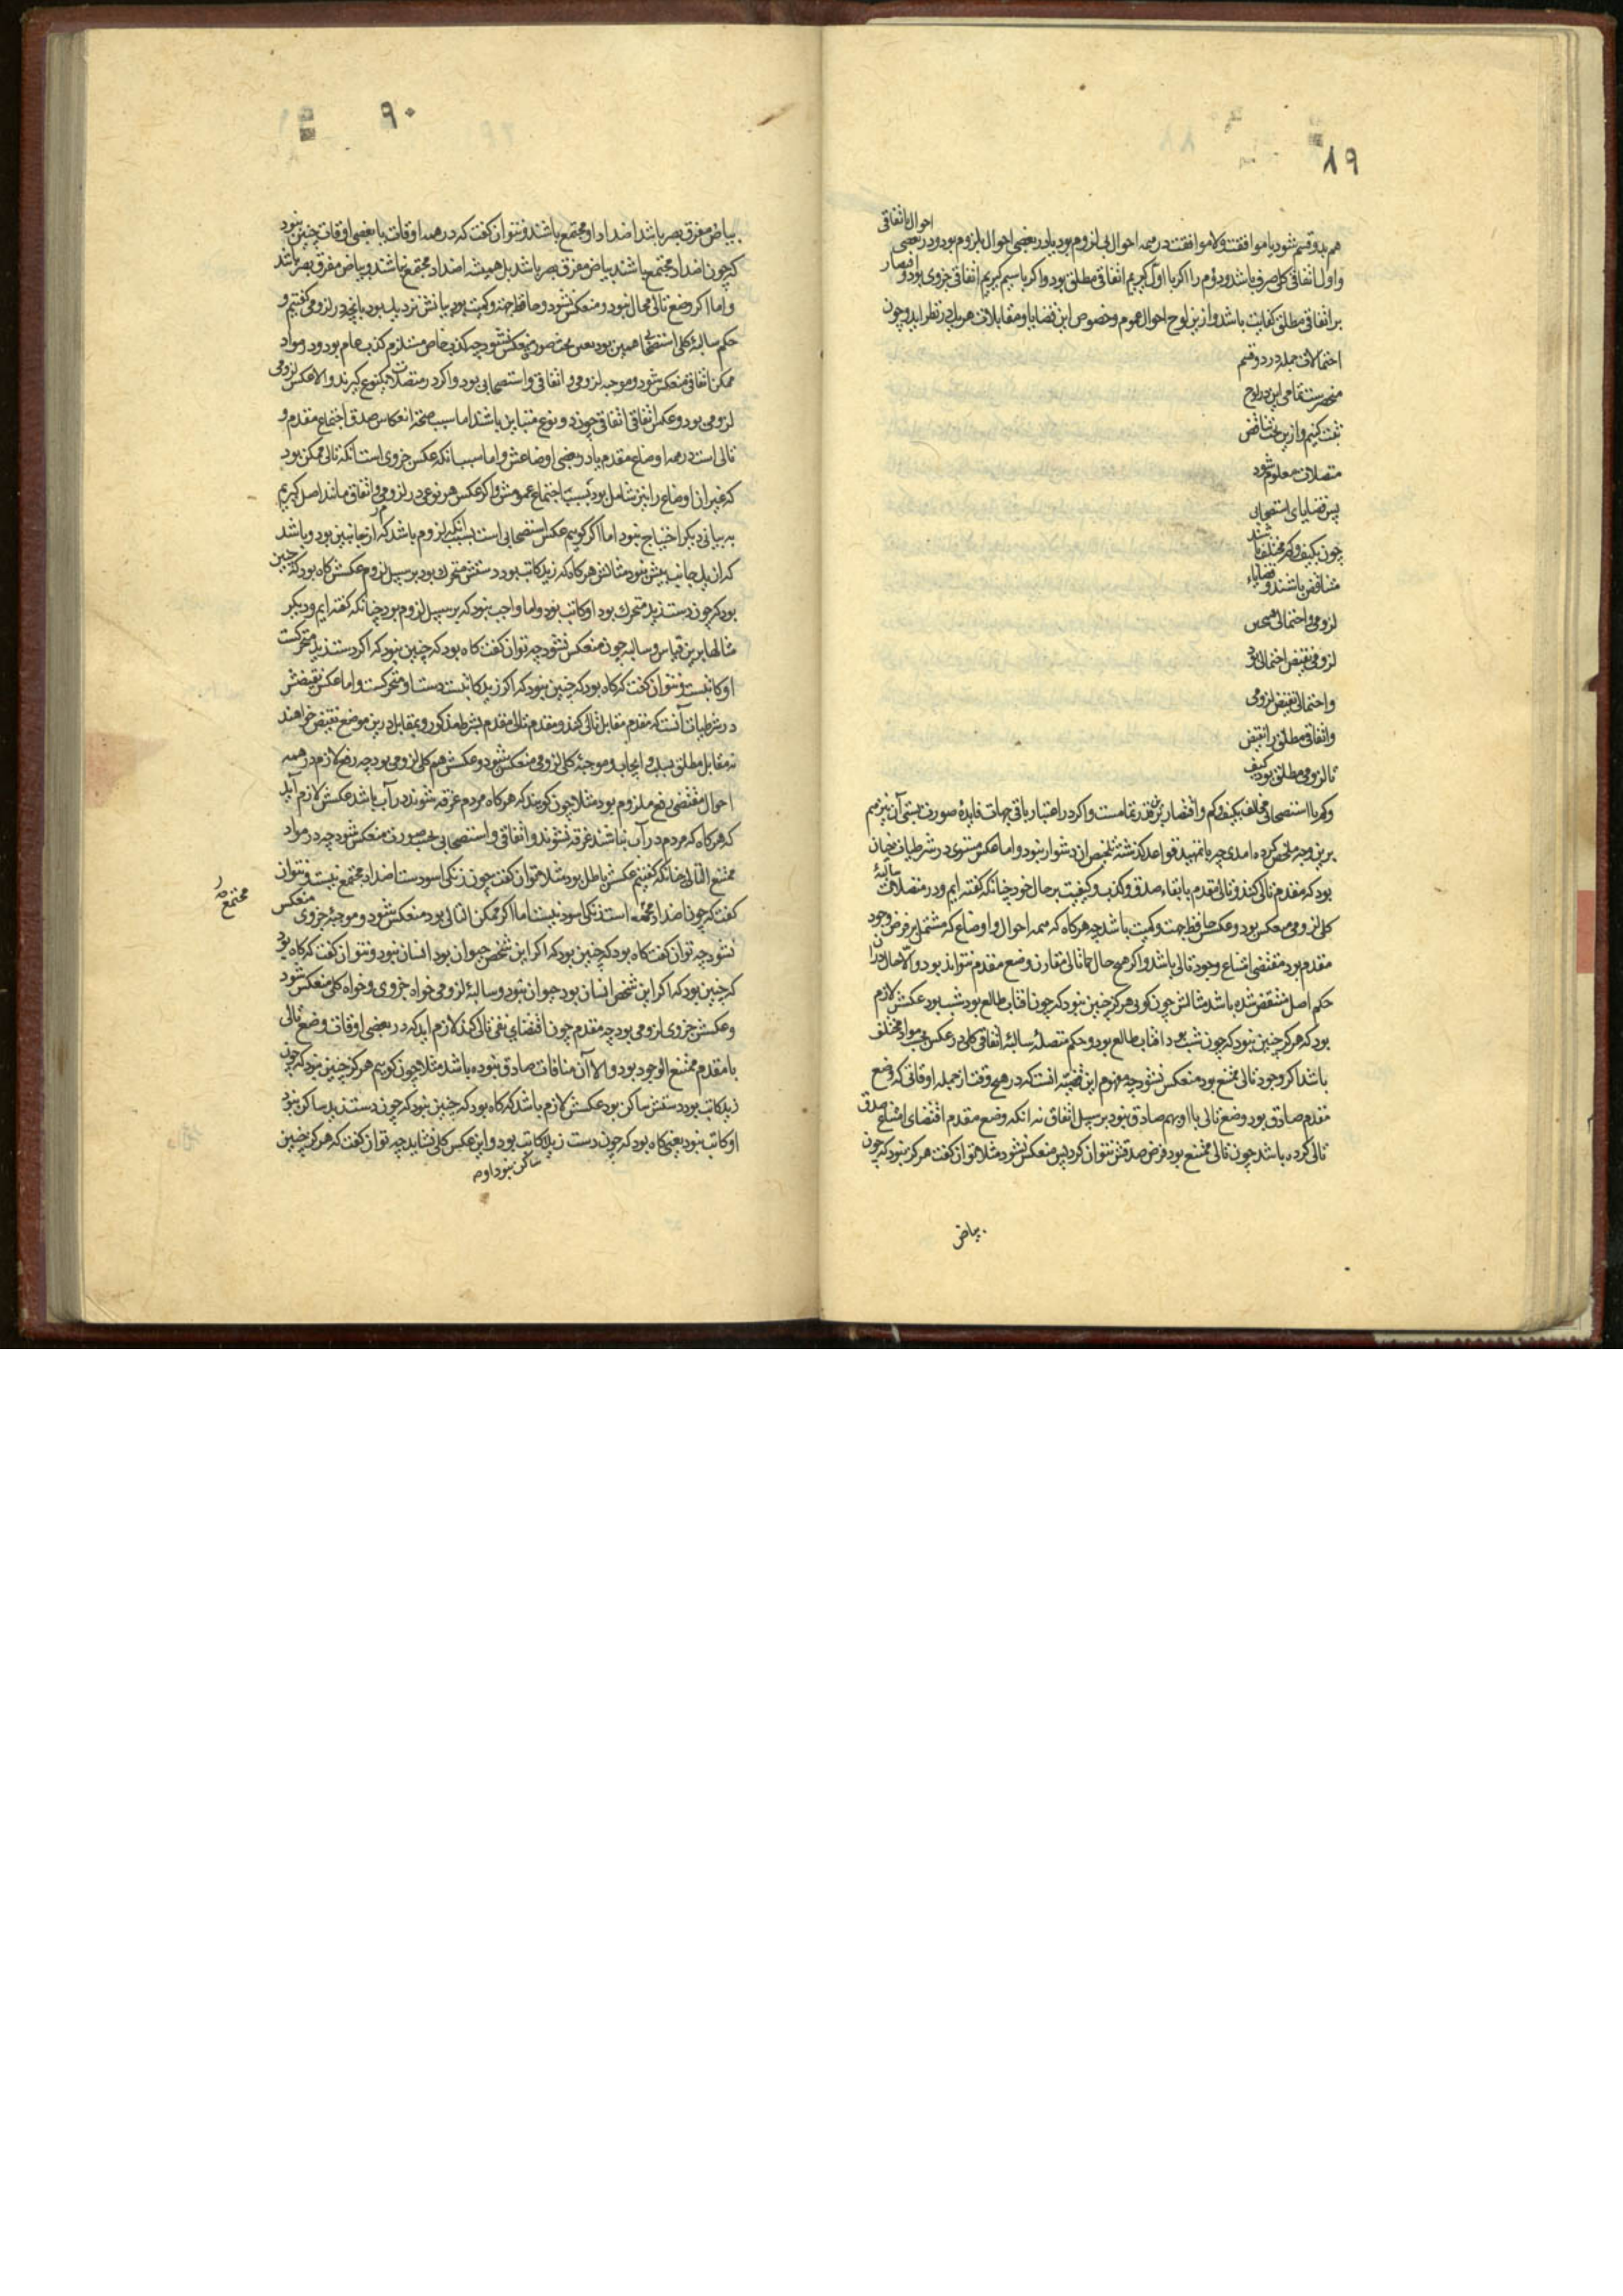 ۸۹
احوال باتفاقی
هم بدو قسم شود یا موافقت و لاموافقت در همه احوال بی لزوم بود یا در بعضی احوال بلزوم بود و در بعضی
و اول اتفاقی کلی صرف باشد و دوم را اکر با اول کیریم اتفاقی مطلق بود و اکر با سیم کیریم اتفاقی جزوی بود و اقتصار
بر اتفاقی مطلق کفایت باشد و ازین لوح احوال عموم و خصوص این قضایا و مقابلات هر یک در نظر اید و چون
احتمالات جمله در دو قسم
منحصرست تمامی این در لوح
ثبت کنیم و ازین بحث تناقض
متصلات معلوم شود
پس قضایای استصحابی
چون بکیف و کم مختلف باشند
متناقض باشند و قضایاء
لزومی و احتمالی همچنین
لزومی نقیض احتمالی بود
و احتمالی نقیض لزومی
و اتفاقی مطلق را نقیض
تالزومی مطلق بود کیف
وکم با استصحابی مخالف بکیف و کم و اقتصار برین قدر تمامست و اکر در اعتبار باقی جهات فایدهٔ صورت بستی آن نیز هم
برین وجه ملخص کرده امدی چه با تمهید قواعد کذشته تلخیص ان دشوار نبود و اما عکس مستوی در شرطیات چنان
بود که مقدم تالی کنند و تالی مقدم با بقاء صدق و کذب و کیفیت بر حال خود چنانکه کفته ایم و در متصلات سالبهٔ
کلی لزومی منعکس بود و عکسش حافظ جهت و کمیت باشد چه هر کاه که همه احوال و اوضاع که مشتمل بر فرض وجود
مقدم بود مقتضی امتناع وجود تالی باشد و اکر هیچ حال تالی مقارن وضع مقدم نتواند بود و الا حال
حکم اصل منتقض شده باشد مثالش چون کوئی هرکز چنین نبود که چون افتاب طالع بود شب بود عکسش لازم
بود که هرکز چنین نبود که چون شب بود افتاب طالع بود و حکم متصلهٔ سالبهٔ اتفاقی کلی در عکس بحسب مواد مختلف
باشد اکر وجود تالی ممتنع بود منعکس نشود چه مفهوم این قضیه انست که در هیچ وقت از جمله اوقاتی که وضع
مقدم صادق بود وضع تالی با او بهم صادق نبود بر سبیل اتفاق نه انکه وضع مقدم اقتضای امتناع صدق
تالی کرده باشد چون تالی ممتنع بود فرض صدقش نتوان کرد پس منعکس نشود مثلا توان کفت هرکز نبود که چون
بیاض
۹۰
بیاض مفرق بصر باشد اضداد او مجتمع باشند و نتوان کفت که در همه اوقات یا بعضی اوقات چنین نبود
که چون اضداد مجتمع باشند بیاض مفرق بصر باشد بل همیشه اضداد مجتمع نباشند و بیاض مفرق بصر باشد
و اما اکر وضع تالی محال نبود و منعکس شود و حافظ جهت و کمیت بود بیانش نزدیک بود بانچه در لزومی کفتیم و
حکم سالبهٔ کلی استصحابی همین بود یعنی بحسب صورت منعکس نشود چه کذب خاص مستلزم کذب عام بود و در مواد
ممکن اتفاقی منعکس شود و موجبه لزومی و اتفاقی و استصحابی بود و اکر در متصلات یکنوع کیرند و الا عکس لزومی
لزومی بود و عکس اتفاقی اتفاقی چون دو نوع متباین باشند اما سبب صحت انعکاس صدق اجتماع مقدم و
تالی است در همه اوضاع مقدم یا در بعضی اوضاعش و اما سبب انکه عکس جزوی است انکه تالی ممکن بود
که غیر ان اوضاع را نیز شامل بود بسبب اجتماع عمومش و اکر عکس هر نوعی در لزومی و اتفاق مانند اصل کیریم
به بیانی دیکر احتیاج نبود اما اکر کوییم عکس استصحابی است بسبب انکه لزوم باشد که از جانبین بود و باشد
که از یک جانب بیش نبود مثالش هر کاه که زید کاتب بود دستش متحرک بود بر سبیل لزوم عکسش کاه بود که چنین
بود که چون دست زید متحرک بود او کاتب بود و اما واجب نبود که بر سبیل لزوم بود چنانکه کفته ایم و دیکر
مثالها برین قیاس و سالبه جزوی منعکس نشود چه توان کفت کاه بود که چنین نبود که اکر دست زید متحرکست
او کاتبست و نتوان کفت که کاه بود که چنین نبود که اکر زید کاتبست دست او متحرکست و اما عکس نقیضش
در شرطیات آنست که مقدم مقابل تالی کنند و مقدم تالی مقدم بشرط مذکور و بمقابل درین موضع نقیض خواهند
نه مقابل مطلق بسلب و ایجاب و موجبهٔ کلی لزومی منعکس شود و عکسش هم کلی لزومی بود چه رفع لازم در همه
احوال مقتضی رفع ملزوم بود مثلا چون کویند که هر کاه مردم غرقه شوند در آب باشد عکسش لازم آید
که هر کاه که مردم در آب نباشند غرقه نشوند و اتفاقی و استصحابی بحسب صورت منعکس شود چه در مواد
ممتنع التالی چنانکه کفتیم عکسش باطل بود مثلا توان کفت چون زنکی اسودست اضداد مجتمع نیست و نتوان
کفت که چون اضداد مجتمعه است زنکی اسود نیست اما اکر ممکن التالی بود منعکس شود و موجبهٔ جزوی منعکس
مجتمع
نشود چه توان کفت کاه بود که چنین بود که اکر این شخص حیوان بود انسان نبود و نتوان کفت که کاه بود
که چنین بود که اکر این شخص انسان بود حیوان نبود و سالبهٔ لزومی خواه جزوی و خواه کلی منعکس شود
و عکسش جزوی لزومی بود چه مقدم چون اقتضای نفی تالی کند لازم اید که در بعضی اوقات وضع تالی
با مقدم ممتنع الوجود بود و الا آن منافات صادق نبوده باشد مثلا چون کوییم هرکز چنین نبود که چون
زید کاتب بود دستش ساکن بود عکسش لازم باشد که کاه بود که چنین نبود که چون دست زید ساکن نبود
او کاتب نبود یعنی کاه بود که چون دست زید کاتب بود و این عکس کلی نشاید چه توان کفت که هرکز چنین
ساکن نبود او